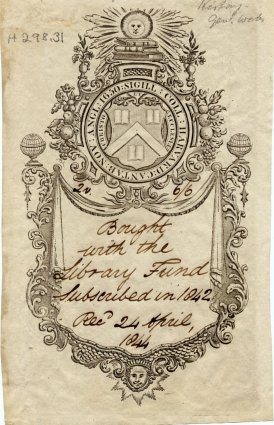 H 298.31
SIGILL : COLL : HARVARD : CANTAB : NOV : ANGL : 1650
2v 6/6
Bought
with the
Library Fund
Subscribed in 1842
Rec^d 24 April,
1844